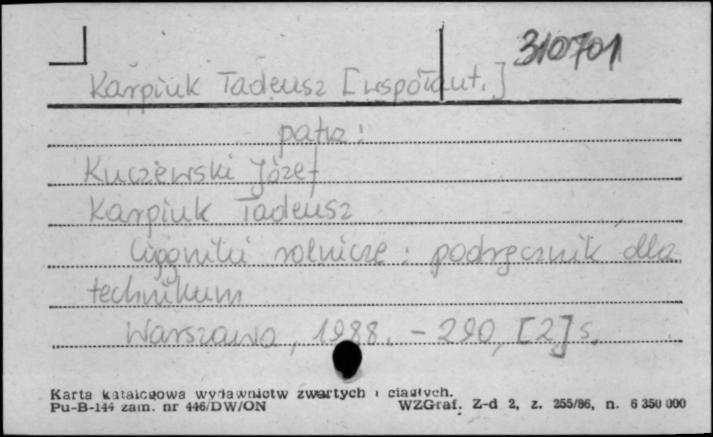 310701
Karpiuk Tadeusz [współaut.]
patrz:
Kuczewski Józef
Karpiuk Tadeusz
Ciągniki rolnicze : podręcznik dla
technikum
Warszawa, 1988. - 290, [2] s.
Karta katalogowa wydawnictw zwartych i ciągłych.
Pu-B-144 zam. nr 446/DW/ON
WZGraf. Z-d 2, z. 255/86, n. 6 350 000